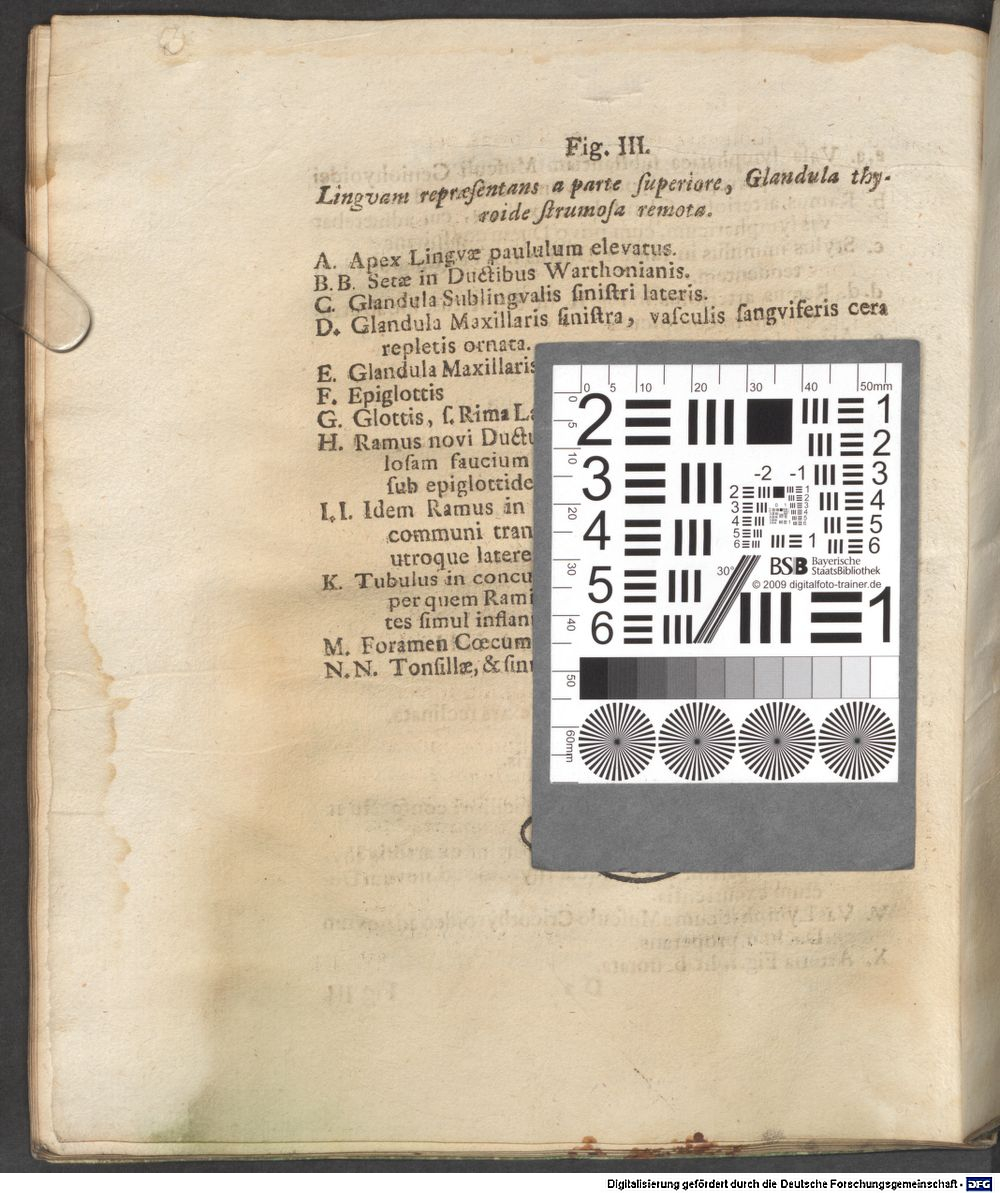 Fig. III.
Lingvam repræſentans a parte ſuperiore, Glandula thy-
roide ſtrumoſa remota.
A. Apex Lingvæ paululum elevatus.
B.B. Setæ in Ductibus Warthonianis.
C. Glandula Sublingvalis ſiniſtri lateris.
D. Glandula Maxillaris ſiniſtra, vaſculis ſangviferis cera
repletis ornata.
E. Glandula Maxillaris
F. Epiglottis
G. Glottis, ſ. Rima
H. Ramus novi
loſam faucium
ſub epiglottide
I. I. Idem Ramus in
communi
utroque latere
K. Tubulus in
per quem
tes ſimul
M. Foramen Cœcum
N. N. Tonſillæ, &
0 5 10 20 30 40 50mm
0 5 10 20 30 40 50 60mm
2 1
2
3 -2 -1 3
4 4
5 5
6 6
2 1
3 2
4 3
5 4
6 5
6
1
30°
BSB Bayerische
StaatsBibliothek
© 2009 digitalfoto-trainer.de
1
Digitalisierung gefördert durch die Deutsche Forschungsgemeinschaft - DFG